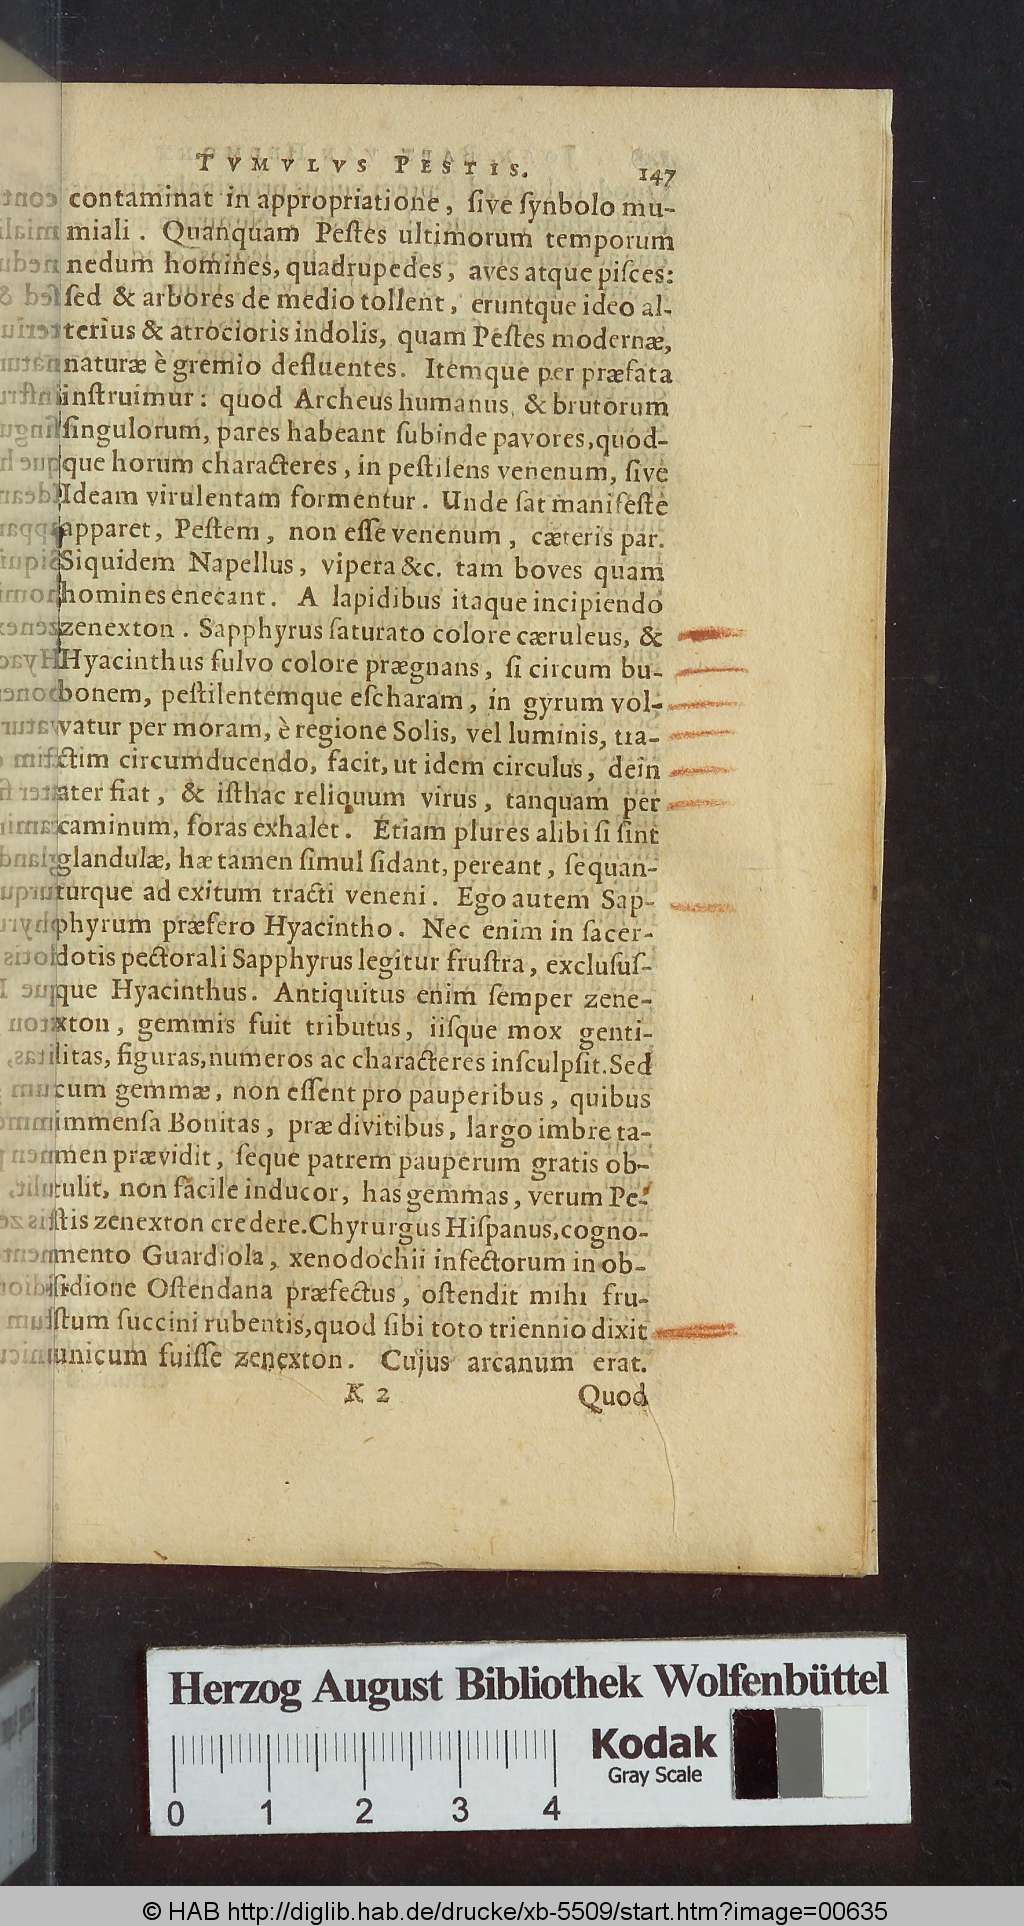 TVMVLVS PESTIS. 147
contaminat in appropriatione, ſive ſynbolo mu-
miali. Quanquam Peſtes ultimorum temporum
nedum homines, quadrupedes, aves atque piſces:
ſed & arbores de medio tollent, eruntque ideo al-
terius & atrocioris indolis, quam Peſtes modernæ,
naturæ è gremio defluentes. Itemque per præfata
inſtruimur: quod Archeus humanus, & brutorum
ſingulorum, pares habeant ſubinde pavores, quod-
que horum characteres, in peſtilens venenum, ſive
Ideam virulentam formentur. Unde ſat manifeſtè
apparet, Peſtem, non eſſe venenum, cæteris par.
Siquidem Napellus, vipera &c. tam boves quam
homines enecant. A lapidibus itaque incipiendo
zenexton. Sapphyrus ſaturato colore cæruleus, &
Hyacinthus fulvo colore prægnans, ſi circum bu-
bonem, peſtilentemque eſcharam, in gyrum vol-
vatur per moram, è regione Solis, vel luminis, tra-
ctim circumducendo, facit, ut idem circulus, dein
ater fiat, & iſthac reliquum virus, tanquam per
caminum, foras exhalet. Etiam plures alibi ſi ſint
glandulæ, hæ tamen ſimul ſidant, pereant, ſequan-
turque ad exitum tracti veneni. Ego autem Sap-
phyrum præfero Hyacintho. Nec enim in ſacer-
dotis pectorali Sapphyrus legitur fruſtra, excluſuſ-
que Hyacinthus. Antiquitus enim ſemper zene-
xton, gemmis fuit tributus, iiſque mox genti-
litas, figuras, numeros ac characteres inſculpſit. Sed
cum gemmæ, non eſſent pro pauperibus, quibus
immenſa Bonitas, præ divitibus, largo imbre ta-
men prævidit, ſeque patrem pauperum gratis ob-
tulit, non facile inducor, has gemmas, verum Pe-
ſtis zenexton credere. Chyrurgus Hiſpanus, cogno-
mento Guardiola, xenodochii infectorum in ob-
ſidione Oſtendana præfectus, oſtendit mihi fru-
ſtum ſuccini rubentis, quod ſibi toto triennio dixit
unicum fuiſſe zenexton. Cujus arcanum erat.
K 2 Quod
Herzog August Bibliothek Wolfenbüttel
Kodak
Gray Scale
0 1 2 3 4
© HAB http://diglib.hab.de/drucke/xb-5509/start.htm?image=00635